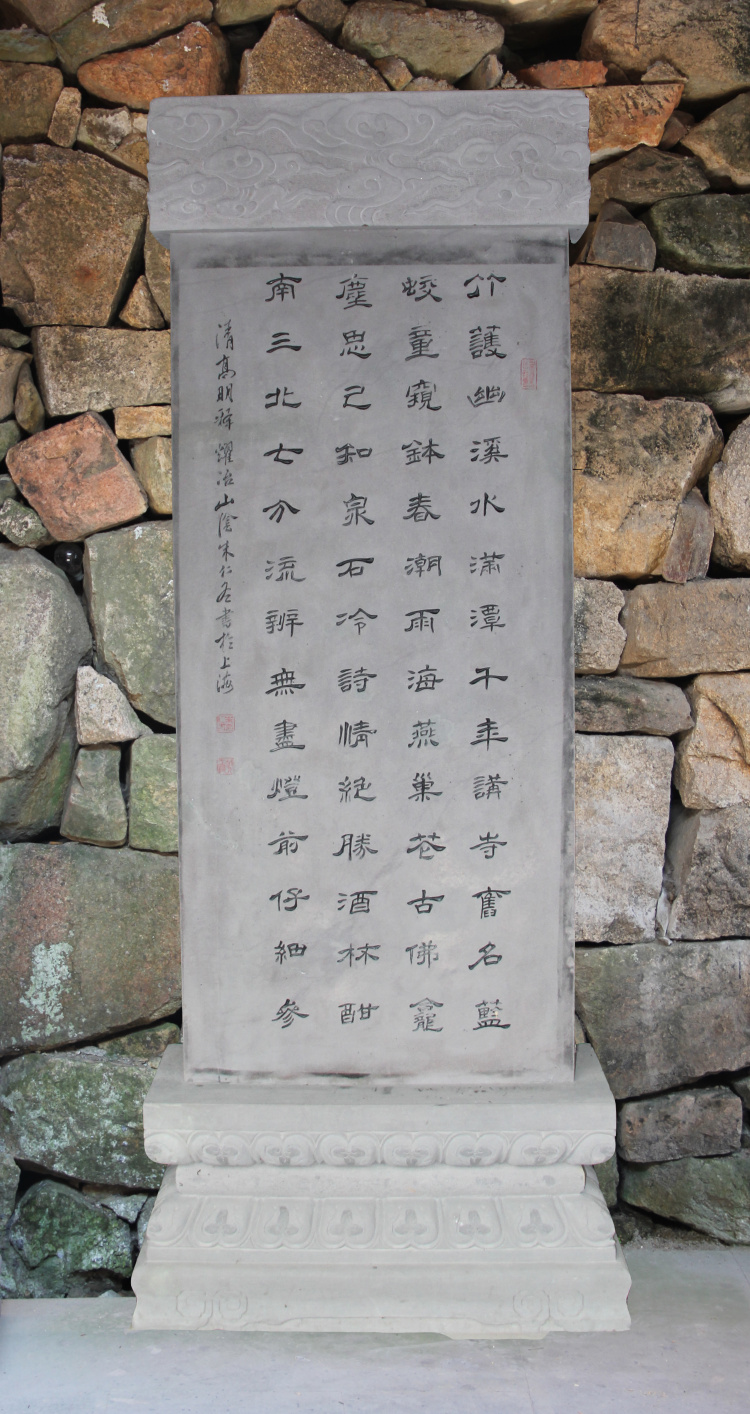 竹護幽溪水滿潭千年講寺舊名藍
蛟童窺鉢春潮雨海燕巢花古佛龕
塵思已知泉石冷詩情絕勝酒杯酣
南三北七分流辨無盡燈前仔細參
清高明 山陰朱仁 書於上海